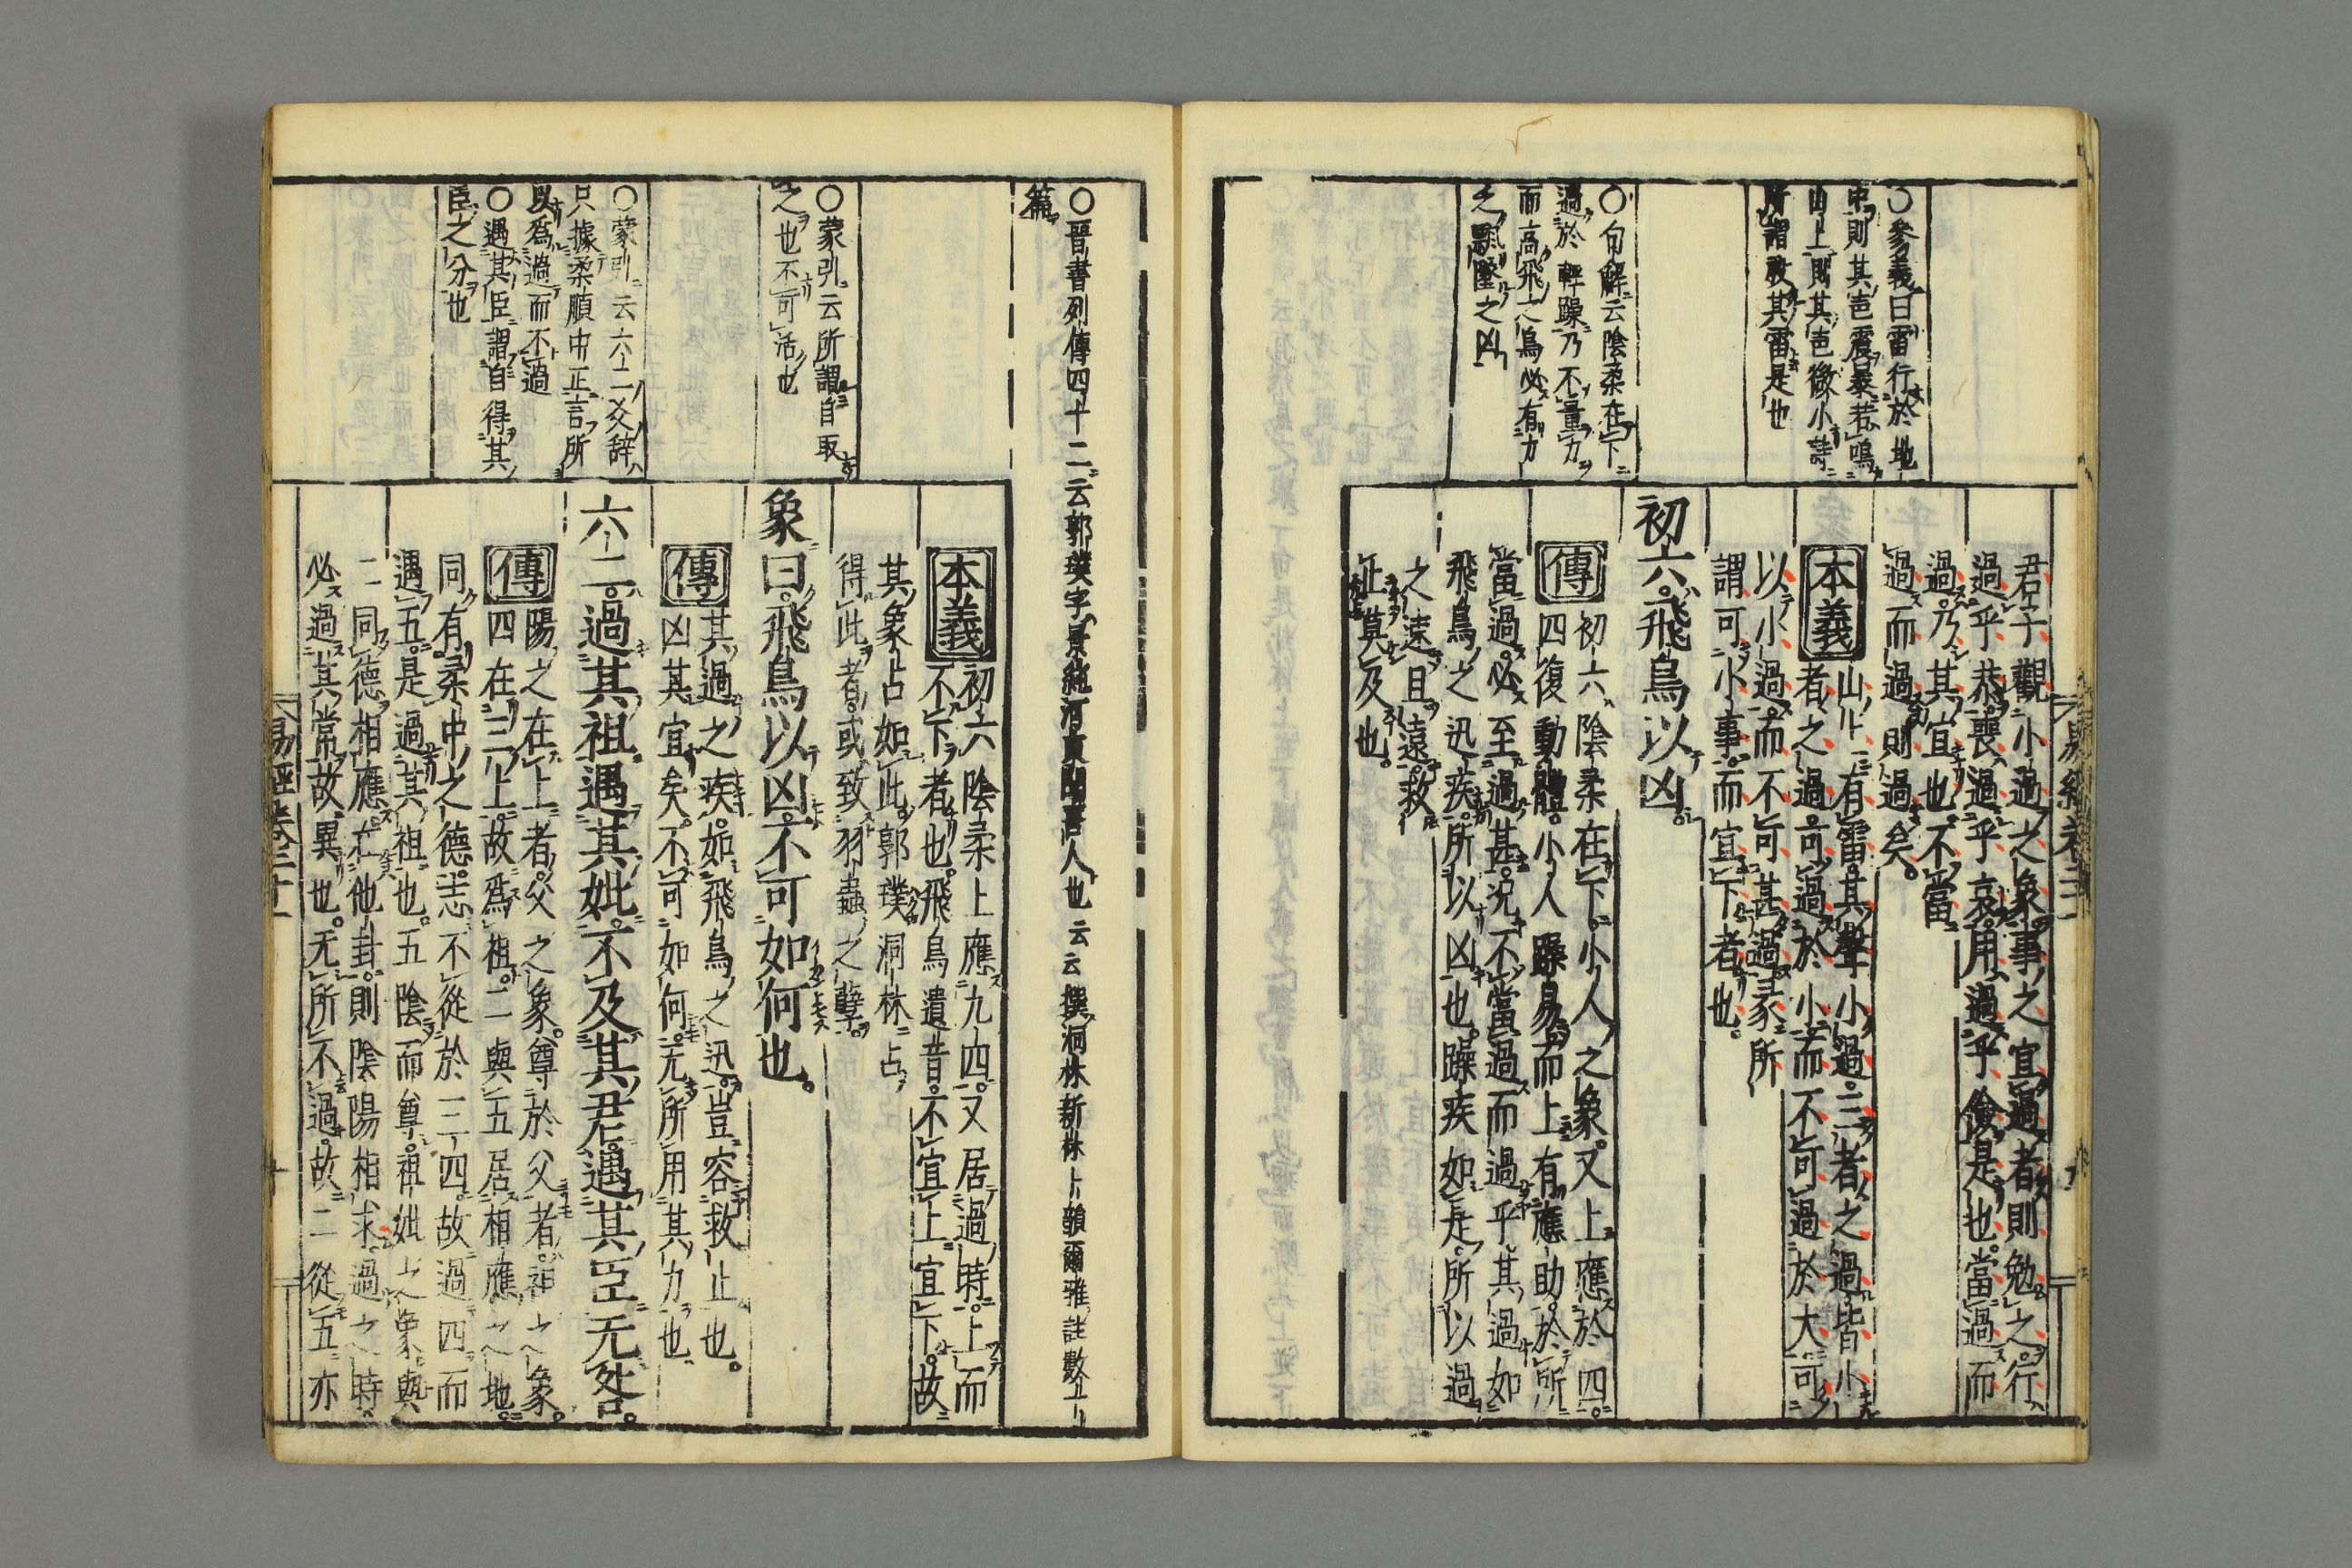 易經卷三
君子觀小過之象事之宜過者則勉之行
過乎恭喪過乎哀用過乎儉是也當過而
過乃其宜也不當
過而過則過矣。
本義
山上有雷其聲小過三者之過皆小
者之過可過於小而不可過於大可
以小過而不可甚過彖所
謂可小事而宜下者也。
初六。飛鳥以凶。
傳
初六陰柔在下。小人之象。又上應於四。
四復動體。小人躁易而上有應助。於所
當過。必至過甚。况不當過而過乎其過如
飛鳥之迅疾。所以凶也。躁疾如是。所以過
之速且遠。救
止莫及也。
〇參義曰雷行於地
中則其
山上則其微小詩
所謂殷其雷是也
〇句解云陰柔在下
過於輕躁乃不量力
而高飛之鳥必有力
乏飄墜之凶
〇晉書列傳四十二云郭璞字景純河東聞喜人也云云撰洞林新林卜韻爾雅註數五十
篇
本義
初六陰柔上應九四。又居過時。上而
不下者也。飛鳥遺音。不宜上宜下。故
其象占如此郭璞洞林占
得此者。或致羽蟲之孽。
象曰。飛鳥以凶。不可如何也。
傳
其過之疾。如飛鳥之迅。豈容救止也。
凶其宜矣。不可如何。无所用其力也
六二。過其祖。遇其妣。不及其君。遇其臣。无咎。
傳
陽之在上者。父之象。尊於父者。祖之象。
四在三上。故爲祖。二與五居相應之地。
同有柔中之德。志不從於三四。故過四而
遇五。是過其祖也。五陰而尊。祖妣之象。與
二同德相應。在他卦。則陰陽相求。過之時。
必過其常。故異也。无所不過。故二從五亦
〇蒙引云所謂自取
之也不可活也
〇蒙引云六二爻辭
只據柔順中正言所
以爲過而不過
〇遇其臣謂自得其
臣之分也
易經卷三